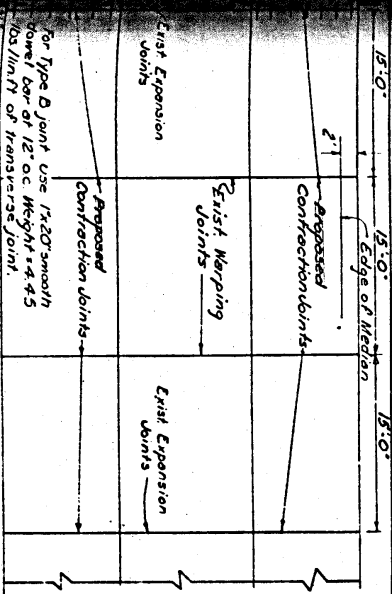 15'-0"
15'-0"
15'-0"
Edge of Median
2'
Proposed
Contraction Joints
Exist. Expansion
Joints
Exist. Warping
Joints
Exist. Expansion
Joints
Proposed
Contraction Joints
For Type B joint use 1"x20" smooth
dowel bar at 12" o.c. Weight = 4.45
lbs/lin.ft of transverse joint.